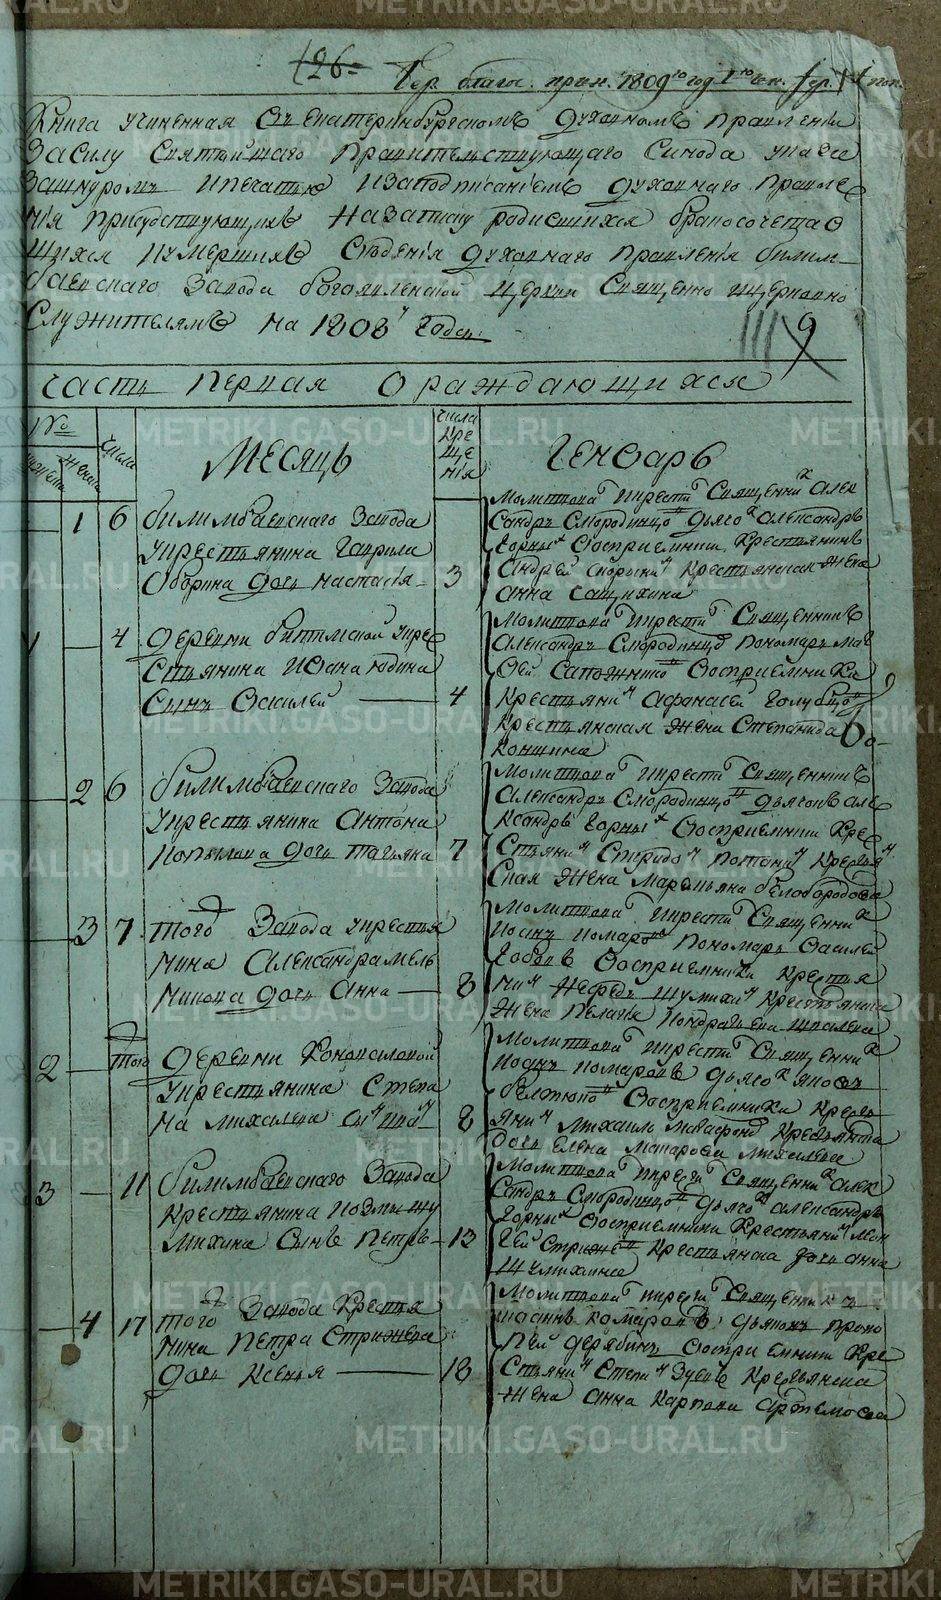 126
1809го год
Книга учиненная въ екатеринбургскомъ духовномъ правленіи
засилу святѣйшаго правительствующаго синода указа
зашнуромъ ипечатью изаподписаніемъ духовнаго правле
нія присудствующихъ назаписку родившихся бракосочетав
шихся иумершихъ ведения духовнаго правленія билим
баевскаго завода богоявленской церкви священно ицерковно
служителямъ на 1808й годъ
9
часть первая о раждающихся
№
мужеска
женска
числа
МЕСЯЦЬ
числа
кре
ще
нія
ГЕНВАРЬ
1 6 билимбаевскаго завода
крестьянина гаврила
оборина дочь настасія 3
молитвова икрести священникъ алек
сандръ смородинцовъ дьячокъ александръ
горныхъ восприемники крестьянинъ
андрей скорынинъ крестьянская жена
анна
1 4 деревни битимской кре
стьянина иоана юдина
сынъ василей 4
молитвова икрести священникъ
александръ смородинцовъ пономарь мат
вей сапожниковъ восприемники
крестьянинъ афанасей голубцовъ
крестьянская жена степанида
коншина
2 6 билимбаевскаго завода
крестьянина антона
копылова дочь татьяна 7
молитвова икрести священникъ
александръ смородинцовъ дьячокъ але
ксандръ горныхъ восприемники кре
стьянинъ спиридонъ потанинъ крестьян
ская жена маремьяна белобородова
3 7 того завода крестья
нина александра мель
никова дочь анна 8
молитвова икрести священникъ
иоанъ комаровъ пономарь василей
восприемники крестья
нинъ шумихинъ крестьянина
жена пелагия кондратьева
2 того деревни коноваловой
крестьянина степа
на михалева сынъ 8
молитвова икрести священникъ
иоанъ комаровъ дьячокъ яковъ
восприемники кресть
янинъ михаилъ крестьянина
дочь елена макарова михалева
3 11 билимбаевскаго завода
крестьянина козмы шу
михина сынъ петръ 13
молитвова икрести священникъ алек
сандръ смородинцовъ дьячокъ александръ
горныхъ восприемники крестьянинъ мои
сей стрижевъ крестьянска дочь анна
шумихина
4 17 того завода крестья
нина петра стрижева
дочь ксенья 18
молитвова икрести священникъ
иоаннъ комаровъ дьяконъ проко
пей дерябинъ восприемники кре
стьянинъ степанъ зуевъ крестьянска
жена анна карпова артемьева